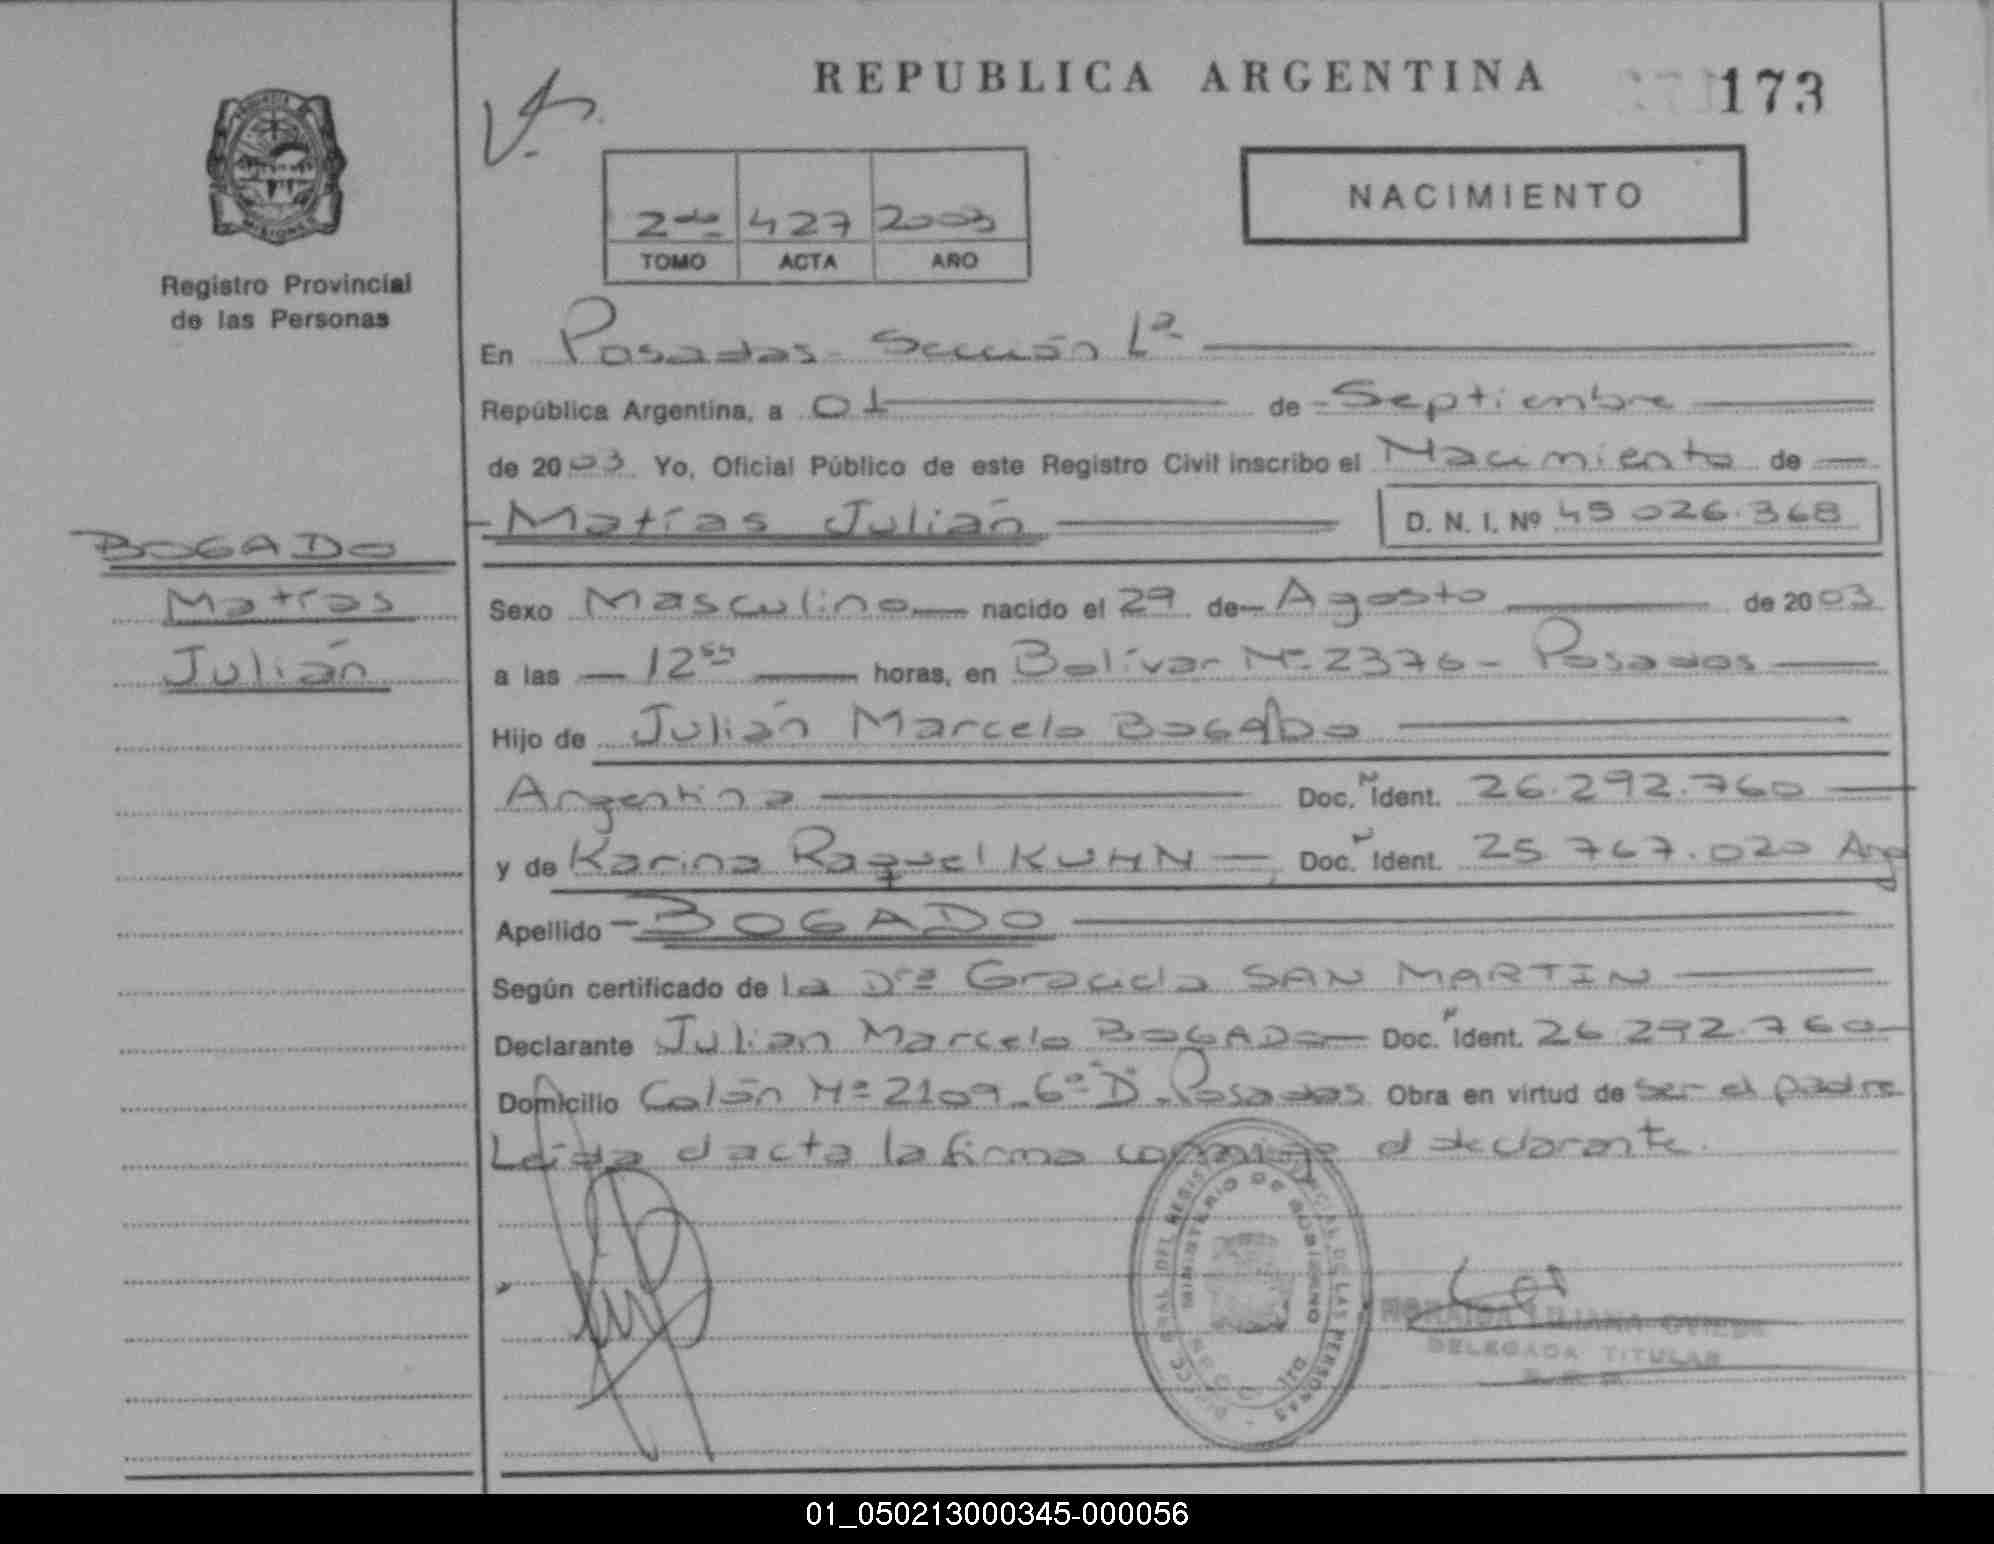 REPUBLICA ARGENTINA
173
NACIMIENTO
2do 427 2003
TOMO ACTA AÑO
MISIONES
Registro Provincial
de las Personas
En Posadas - Sección 1ª
República Argentina, a 01 de Septiembre
de 2003 Yo, Oficial Público de este Registro Civil inscribo el Nacimiento de
Matías Julián D. N. I. Nº 45 026.368
BOGADO
Matías
Julián
Sexo Masculino nacido el 29 de Agosto de 2003
a las 12 horas, en Bolívar Nº 2376 - Posadas
Hijo de Julián Marcelo BOGADO
Argentina Doc. Ident. 26.292.760
y de Karina Raquel KUHN Doc. Ident. 25.767.020 Arg
Apellido BOGADO
Según certificado de la Drª Graciela SAN MARTIN
Declarante Julian Marcelo BOGADO Doc. Ident. 26.292.760
Domicilio Colón Nº 2109 - 6º "D" - Posadas Obra en virtud de ser el padre
Leída el acta la firma conmigo el declarante.
MINISTERIO DE GOBIERNO
LILIANA
DELEGADA TITULAR
01_050213000345-000056